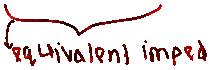 equivalent imped